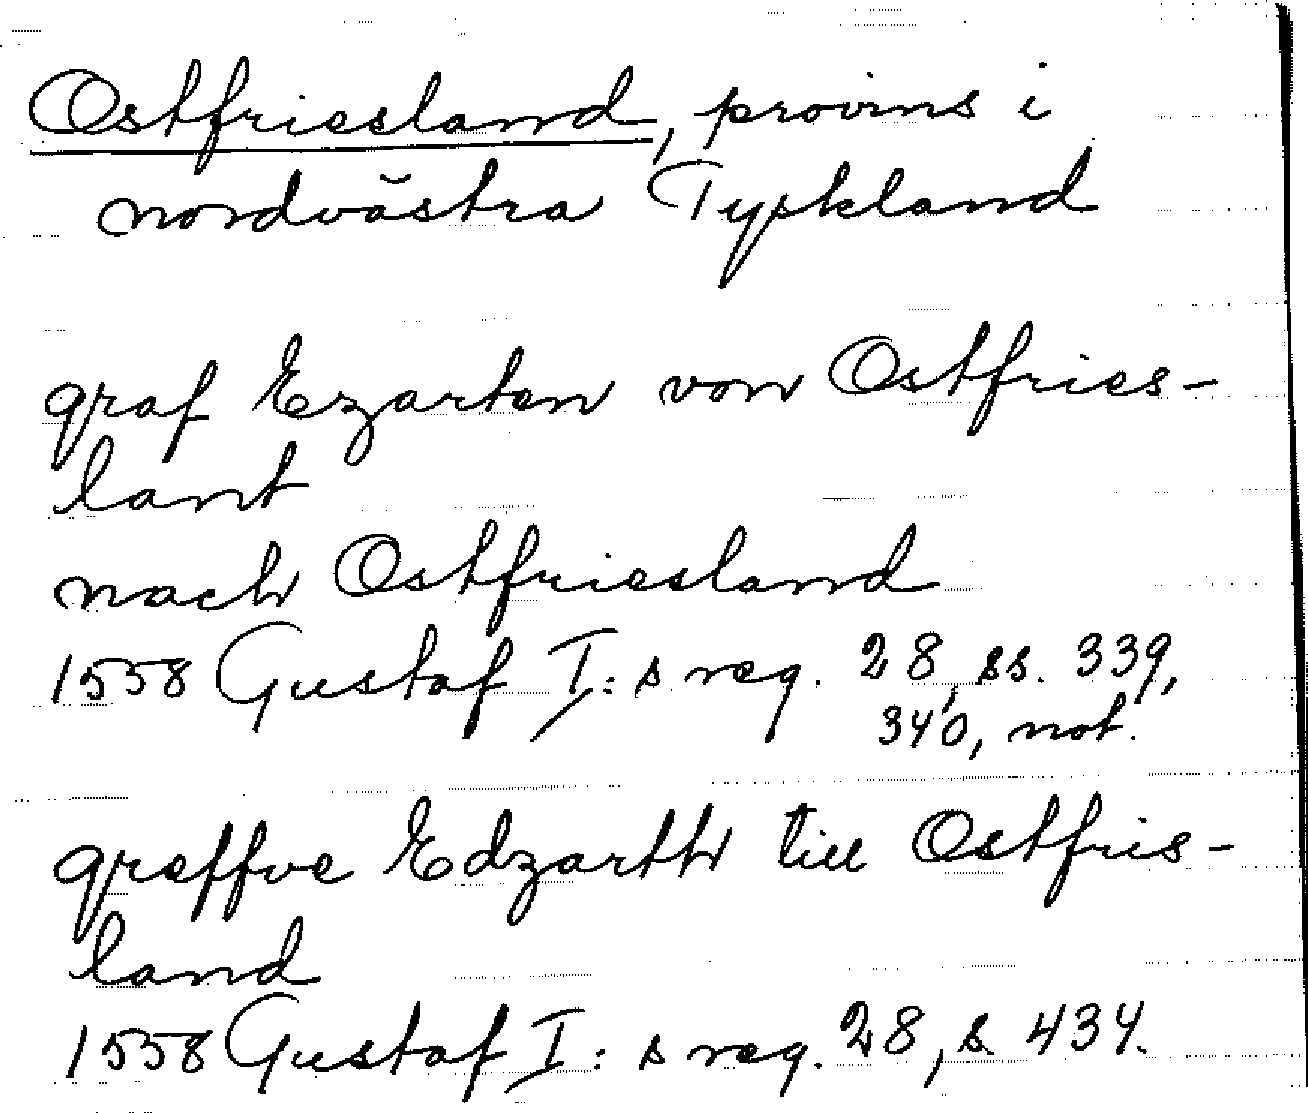 Ostfriesland, provins i
nordvästra Tyskland
graf Ezarten von Ostfries-
lant
nach Ostfriesland
1558 Gustaf I:s reg. 28, ss. 339,
340, not.
greffve Edzarth till Ostfris-
land
1558 Gustaf I:s reg. 28, s. 434.